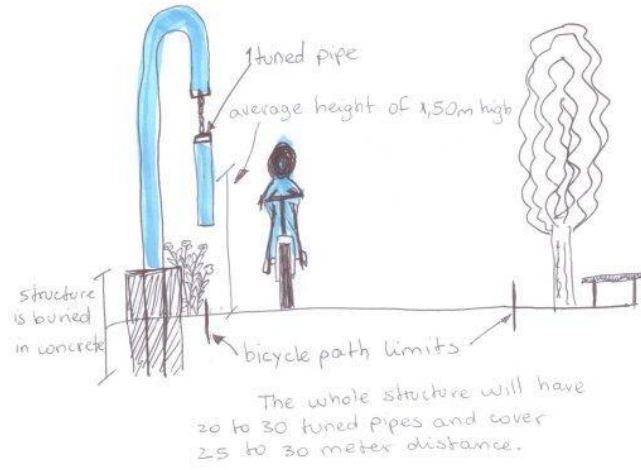 1 tuned pipe
average height of 1,50m high
structure
is buried
in concrete
bicycle path limits
The whole structure will have
20 to 30 tuned pipes and cover
25 to 30 meter distance.